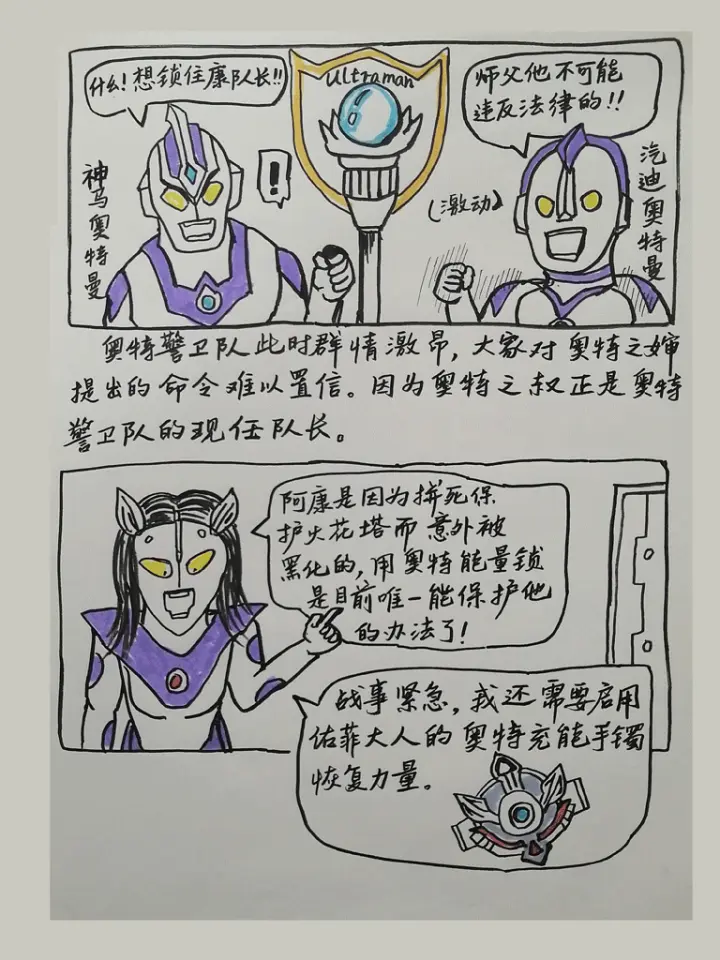 什么！想锁住康队长！！
神马奥特曼
!
Ultraman
师父他不可能
违反法律的！！
（激动）
汽迪奥特曼
奥特警卫队此时群情激昂，大家对奥特之婶
提出的命令难以置信。因为奥特之叔正是奥特
警卫队的现任队长。
阿康是因为拼死保
护火花塔而意外被
黑化的，用奥特能量锁
是目前唯一能保护他
的办法了！
战事紧急，我还需要启用
佑菲大人的奥特充能手镯
恢复力量。